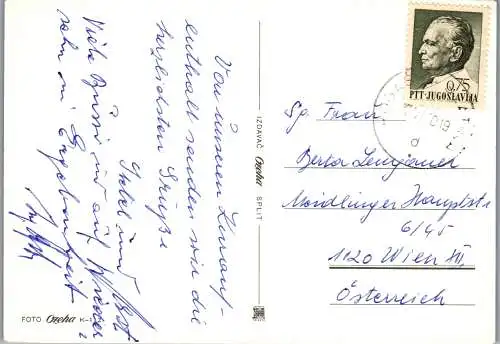 Von unserem Kurauf-
enthalt senden wir die
herzlichsten Grüße
und
Viele Bussi und auf Wieder
sehn in Ergebenheit
FOTO Ozeha K-1
IZDAVAČ Ozeha SPLIT
0,75
PTT-JUGOSLAVIJA
19
d
Sg. Frau
Berta
Meidlinger Hauptstr
6/45
1120 Wien XII,
Österreich